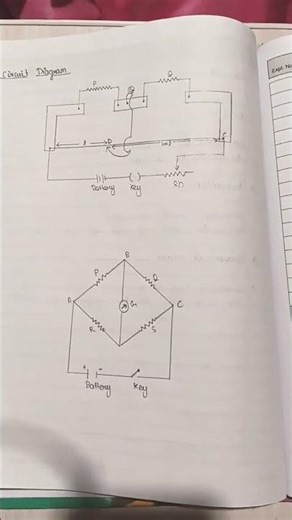 Circuit Diagram
Expt. No
P
Q
l
D
Battery
Key
Rh
B
P
Q
A
G
C
R
S
+
-
Battery
Key